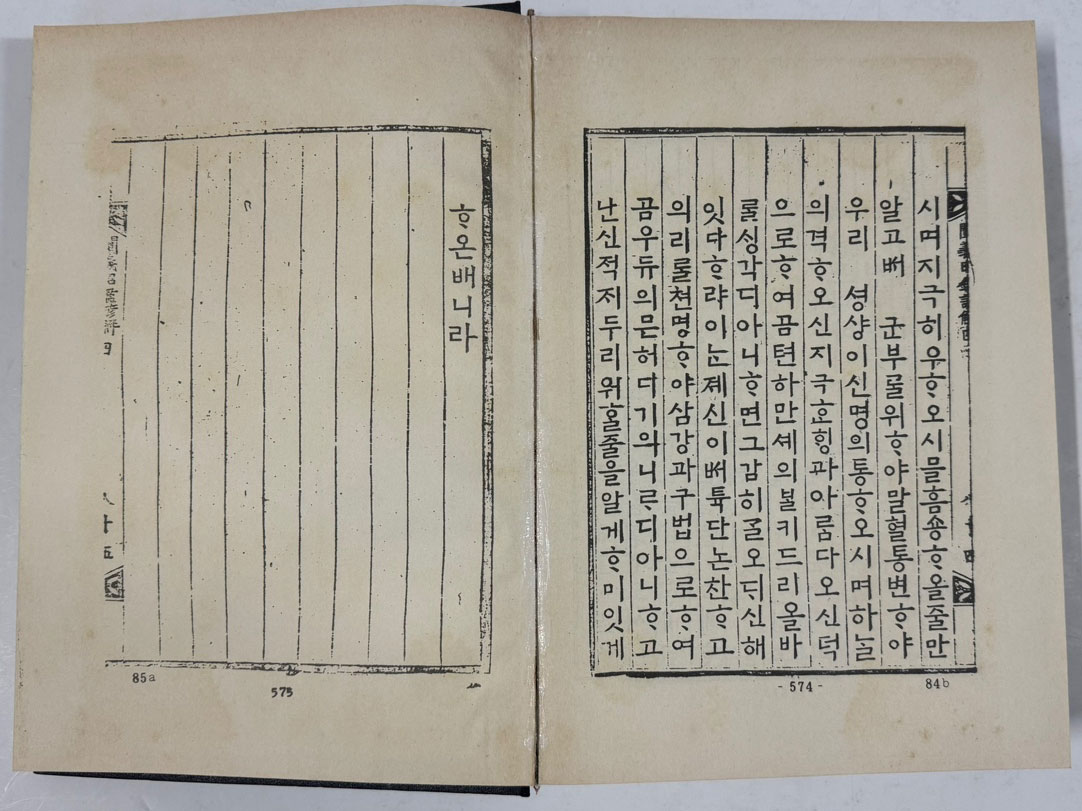 시며지극히우ᄒᆞ오시믈흠숑ᄒᆞ올줄만
알고ᄲᅥ 군부ᄅᆞᆯ위ᄒᆞ야말혈통변ᄒᆞ야
우리 셩샹이신명의통ᄒᆞ오시며하ᄂᆞᆯ
의격ᄒᆞ오신지극효ᄒᆡᆼ과아름다오신덕
으로ᄒᆞ여곰텬하만셰의ᄇᆞᆯ키드리올바
ᄅᆞᆯᄉᆡᆼ각디아니ᄒᆞ면그감히ᄀᆞᆯ오ᄃᆡ신해
잇다ᄒᆞ랴이ᄂᆞᆫ졔신이ᄡᅥ특단논찬ᄒᆞ고
의리ᄅᆞᆯ쳔명ᄒᆞ야삼강과구법으로ᄒᆞ여
곰우듀의믄허디기의니ᄅᆞ디아니ᄒᆞ고
난신적지두리워ᄒᆞᆯ줄을알게ᄒᆞ미잇게
84b
- 574 -
ᄒᆞ온배니라
四
五
85a
575